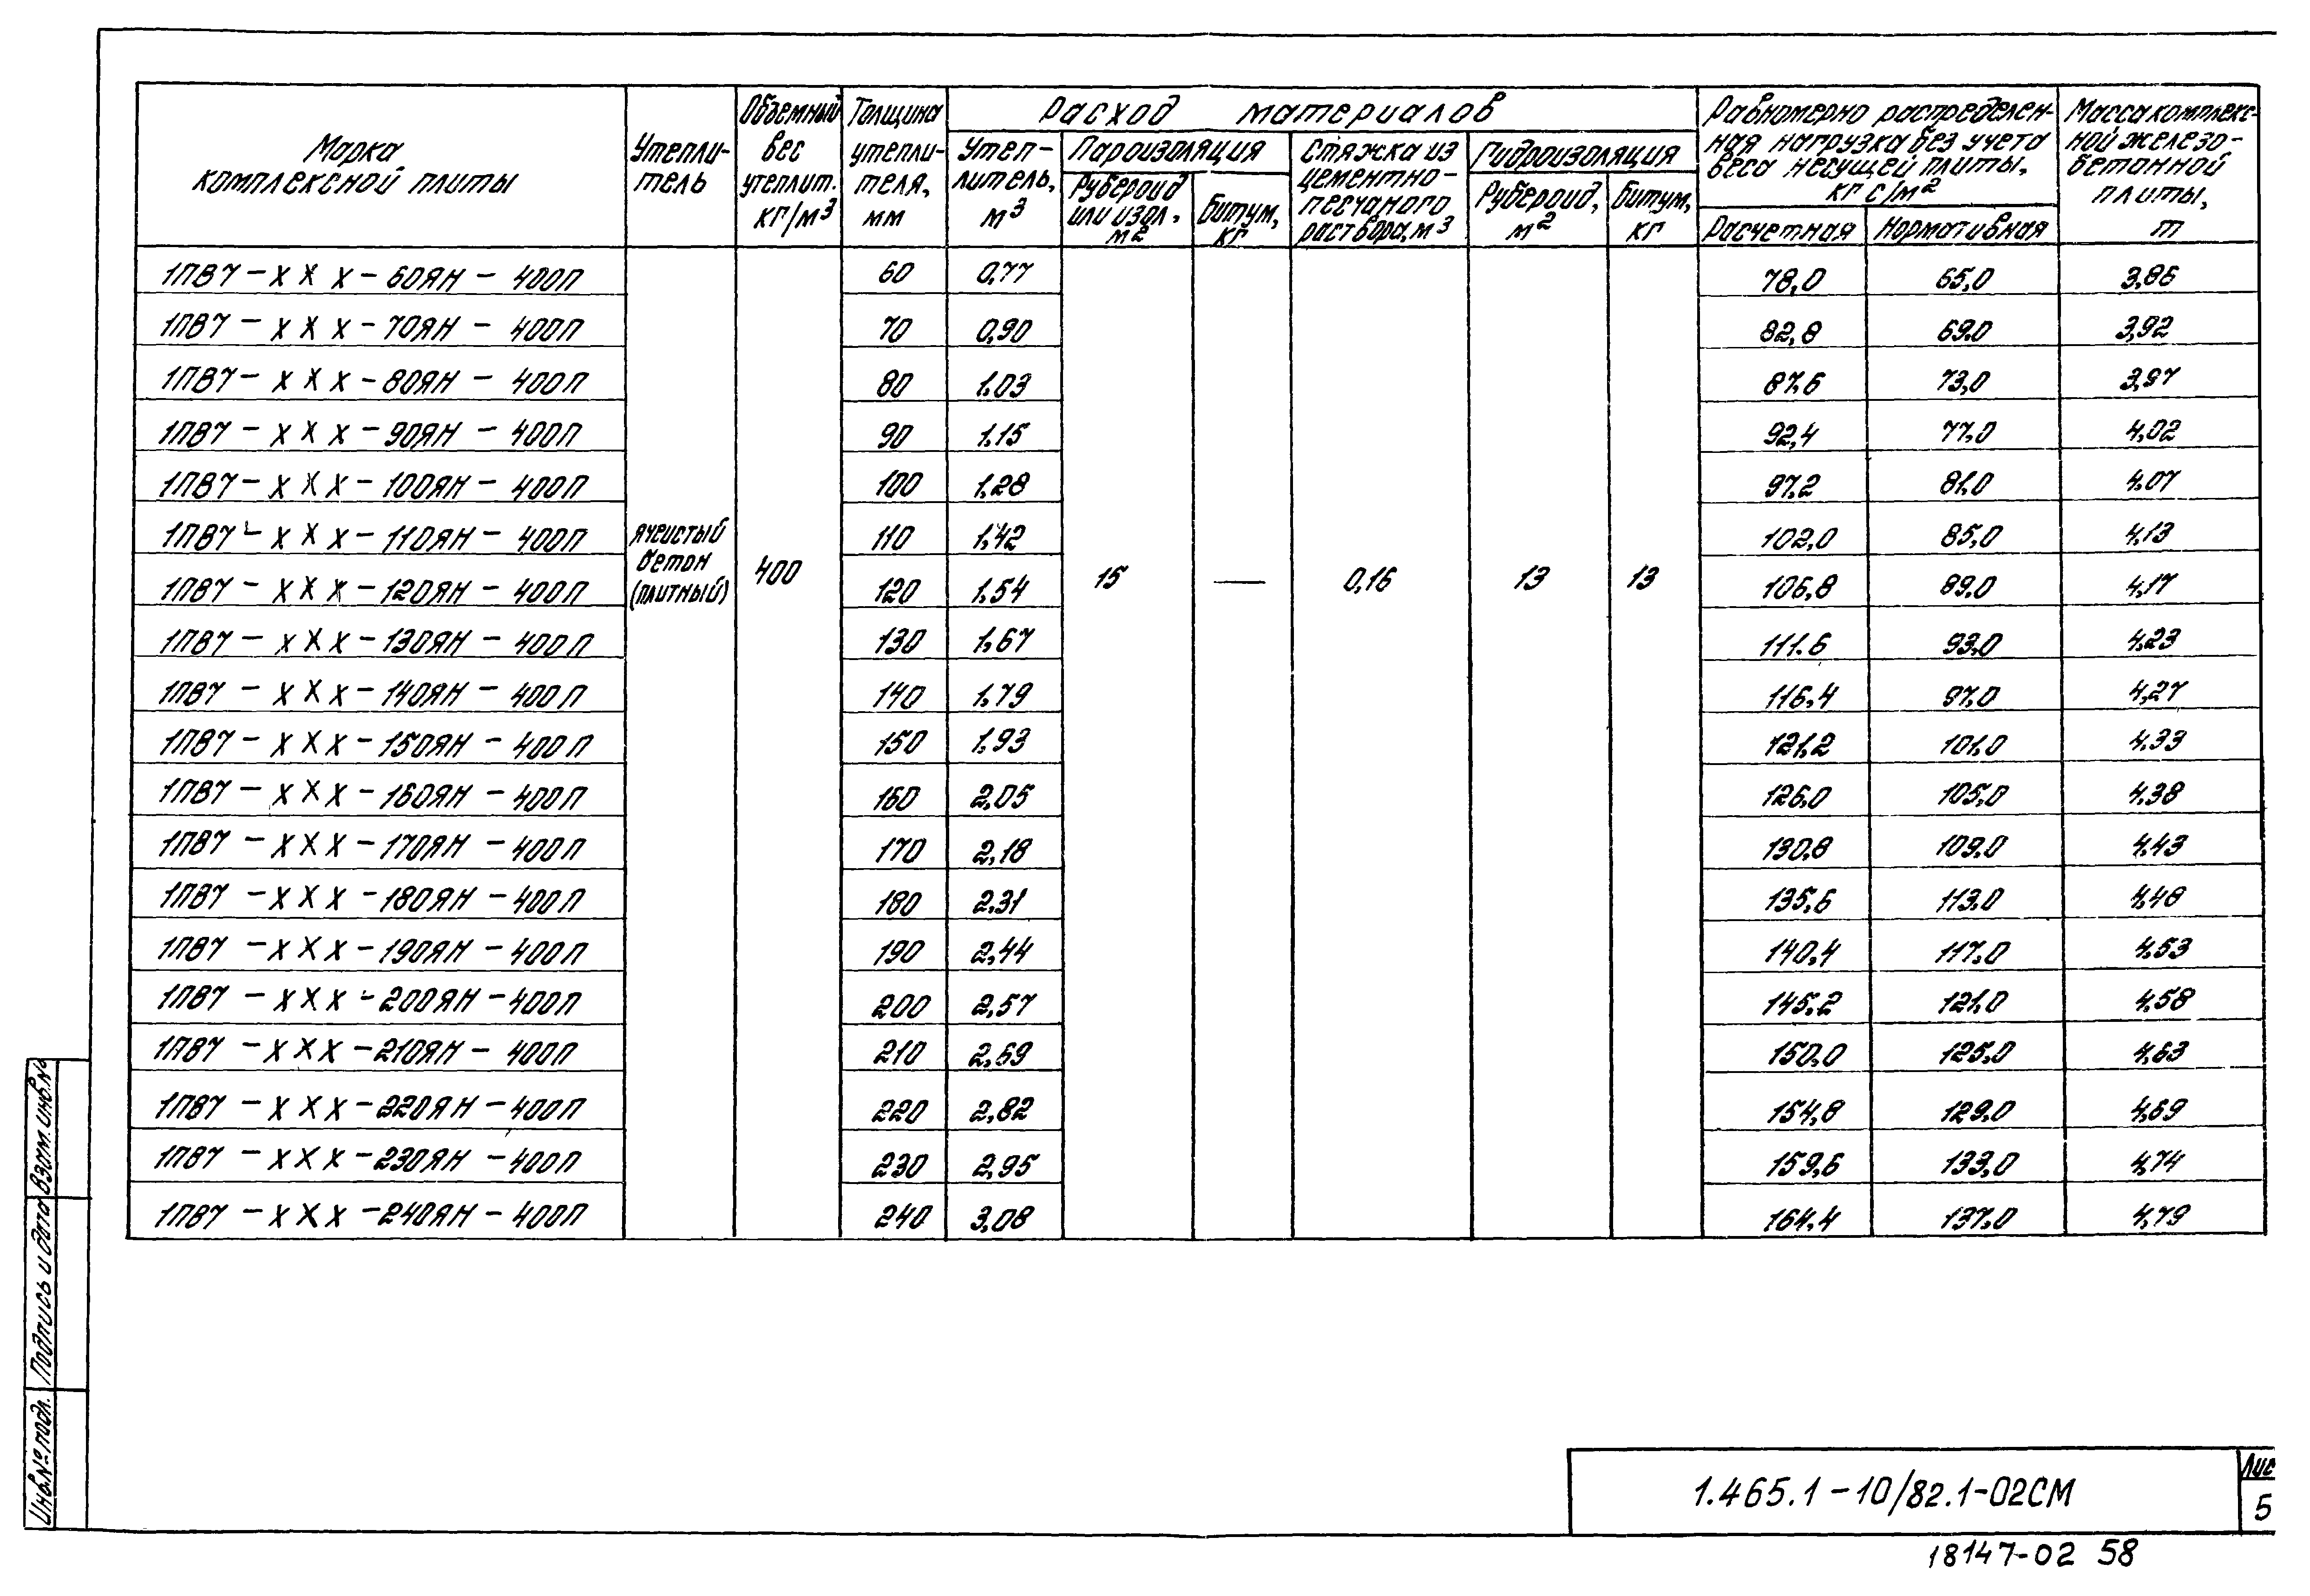 Марка комплексной плиты
Утепли-
тель
Объемный
вес
утеплит.
кг/м³
Толщина
утепли-
теля,
мм
Расход материалов
Утеп-
литель,
м³
Пароизоляция
Рубероид
или изол,
м²
Битум,
кг
Стяжка из
цементно-
песчаного
раствора, м³
Гидроизоляция
Рубероид,
м²
Битум,
кг
Равномерно распределен-
ная нагрузка без учета
веса несущей плиты,
кгс/м²
Расчетная Нормативная
Масса комплекс-
ной железо-
бетонной
плиты,
т
1ПВ7-XXX-60ЯН-400П 60 0,77 78,0 65,0 3,86
1ПВ7-XXX-70ЯН-400П 70 0,90 82,8 69.0 3,92
1ПВ7-XXX-80ЯН-400П 80 1.03 87,6 73,0 3,97
1ПВ7-XXX-90ЯН-400П 90 1,15 92,4 77,0 4,02
1ПВ7-XXX-100ЯН-400П 100 1,28 97,2 81,0 4,07
1ПВ7-XXX-110ЯН-400П 110 1,42 102,0 85,0 4,13
ячеистый
бетон
(плитный)
400 15 — 0,16 13 13
1ПВ7-XXX-120ЯН-400П 120 1.54 106,8 89,0 4,17
1ПВ7-XXX-130ЯН-400П 130 1,67 111.6 93,0 4,23
1ПВ7-XXX-140ЯН-400П 140 1,79 116,4 97,0 4,27
1ПВ7-XXX-150ЯН-400П 150 1,93 121,2 101,0 4,33
1ПВ7-XXX-160ЯН-400П 160 2,05 126,0 105,0 4,38
1ПВ7-XXX-170ЯН-400П 170 2,18 130,8 109,0 4,43
1ПВ7-XXX-180ЯН-400П 180 2,31 135,6 113,0 4,48
1ПВ7-XXX-190ЯН-400П 190 2,44 140,4 117,0 4,53
1ПВ7-XXX-200ЯН-400П 200 2,57 145,2 121,0 4,58
1ПВ7-XXX-210ЯН-400П 210 2,69 150,0 125,0 4,63
1ПВ7-XXX-220ЯН-400П 220 2,82 154,8 129,0 4,69
1ПВ7-XXX-230ЯН-400П 230 2,95 159,6 133,0 4,74
1ПВ7-XXX-240ЯН-400П 240 3,08 164,4 137,0 4,79
Инв.№ подл. Подпись и дата Взам. инв.№
1.465.1-10/82.1-02СМ
Лис
5
18147-02 58